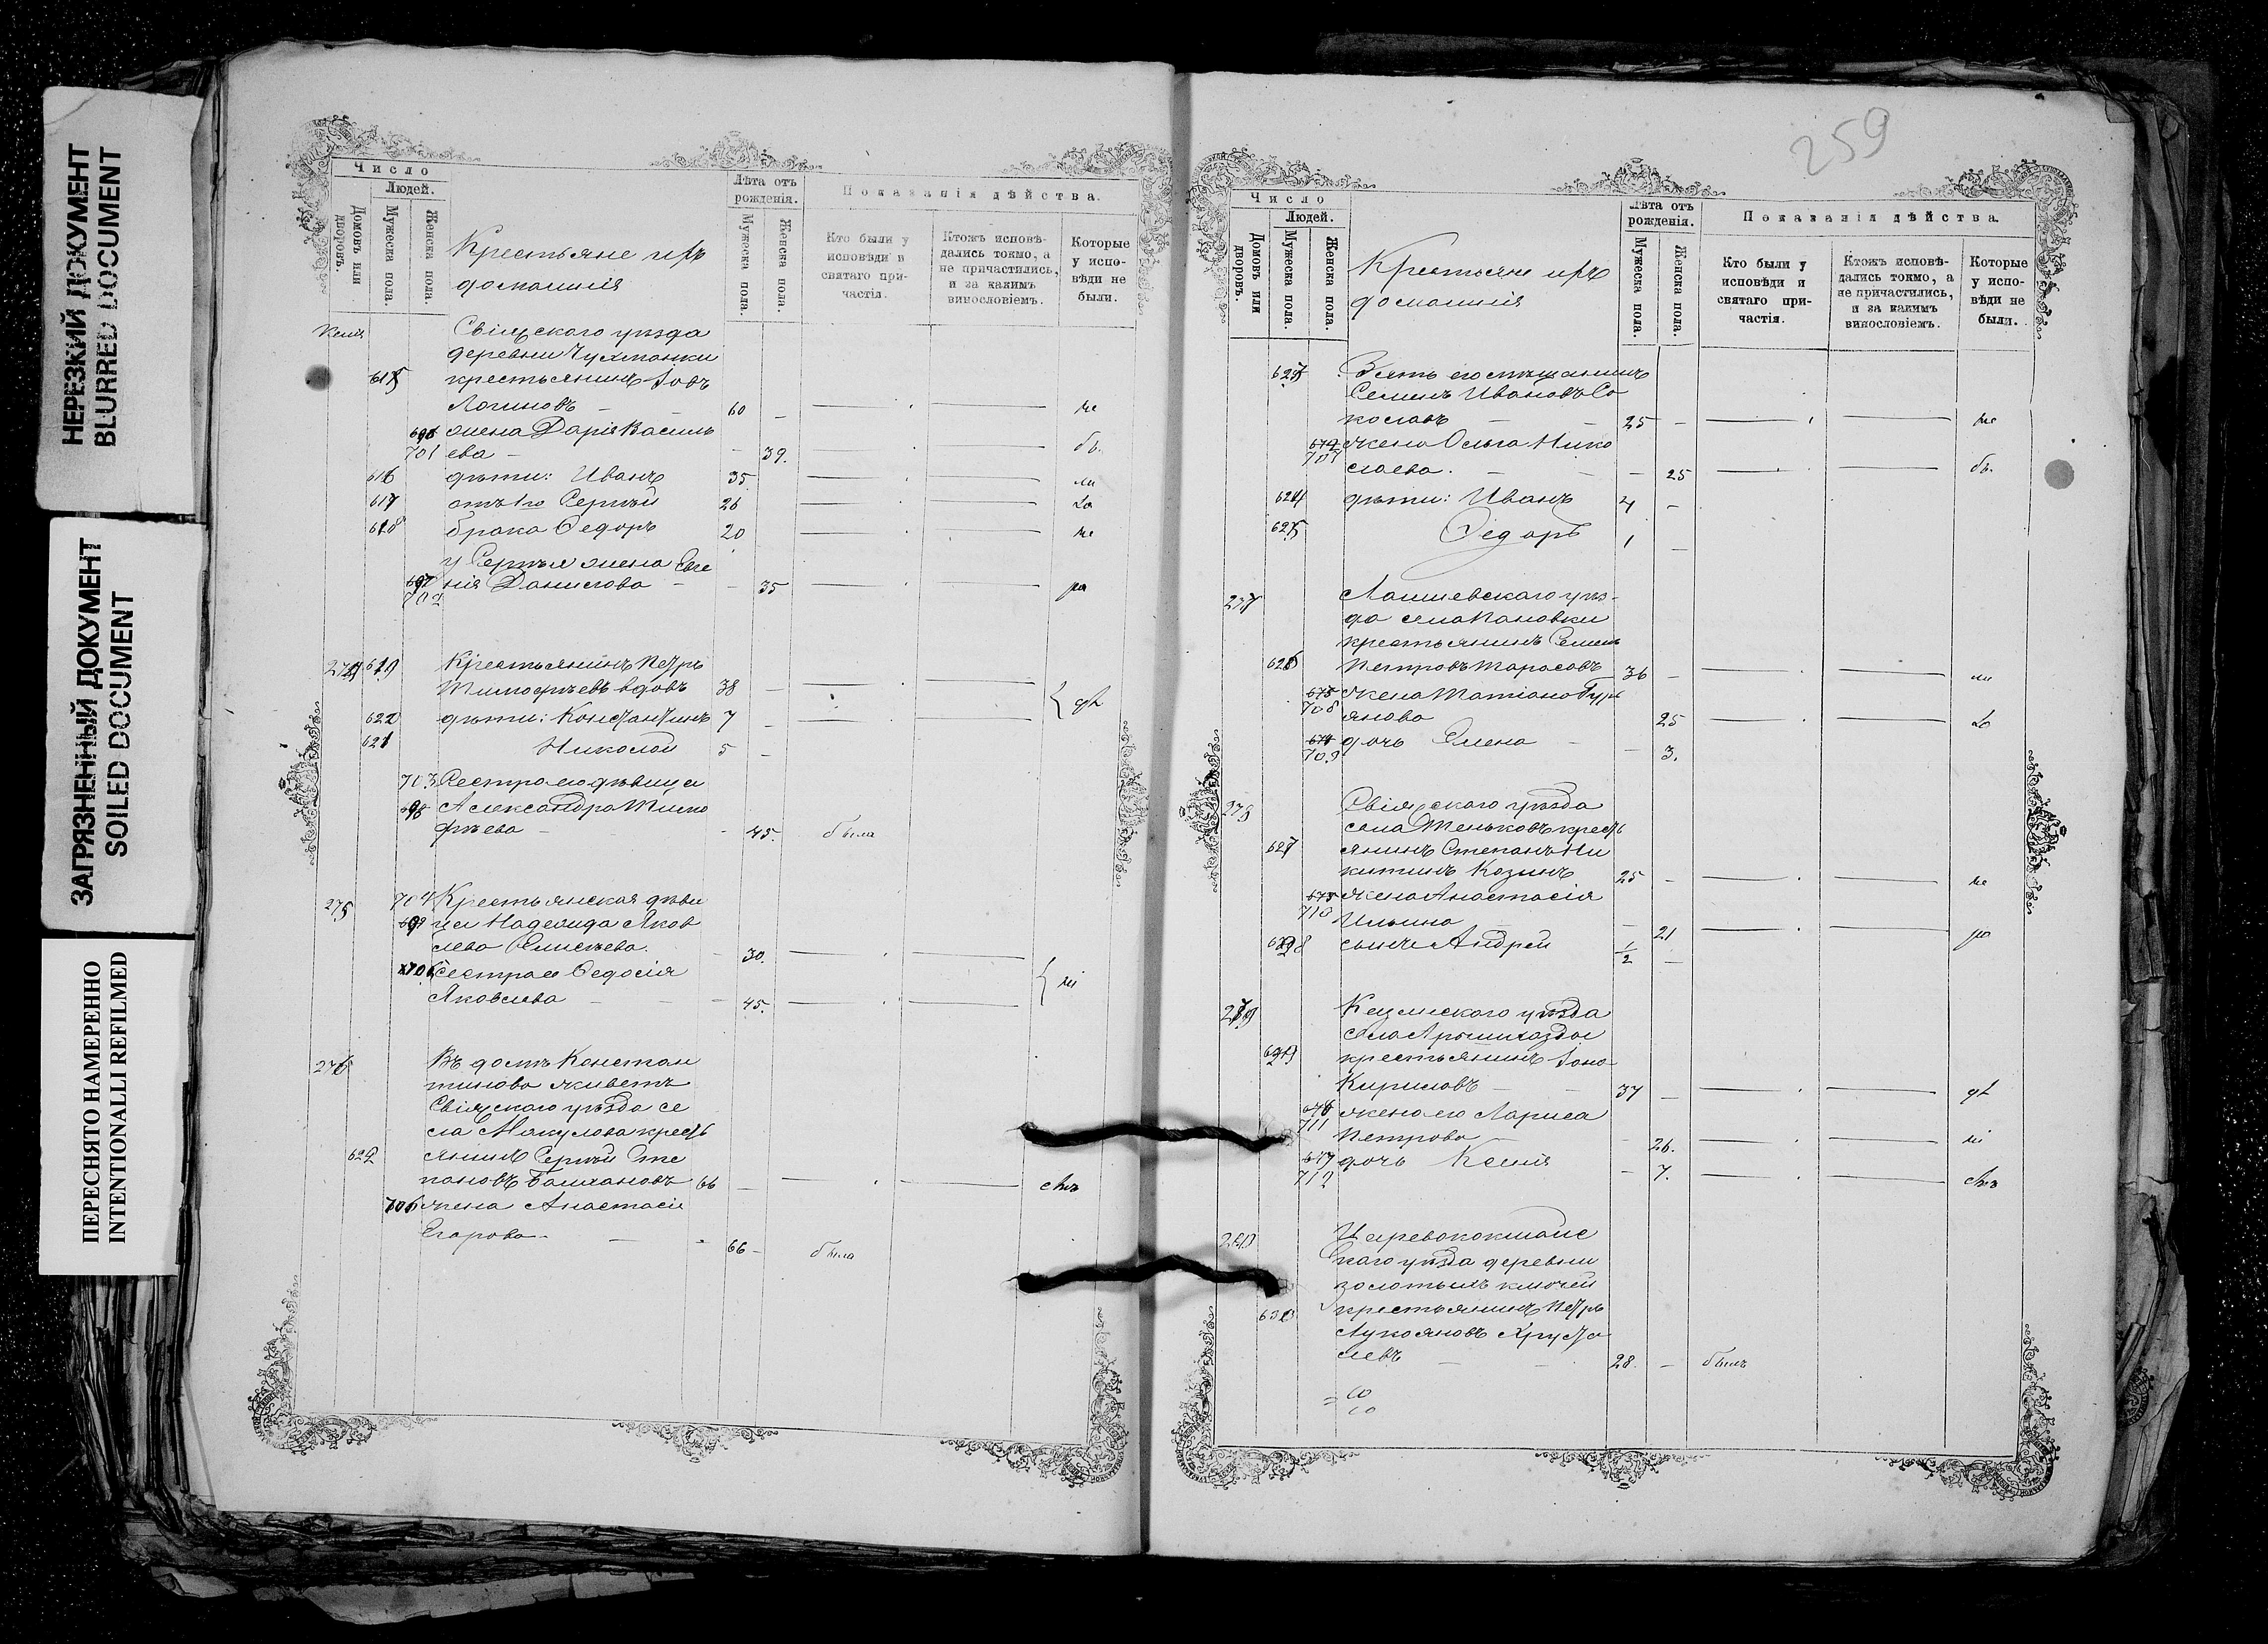 НЕРЕЗКИЙ ДОКУМЕНТ
BLURRED DOCUMENT
ЗАГРЯЗНЕННЫЙ ДОКУМЕНТ
SOILED DOCUMENT
ПЕРЕСНЯТО НАМЕРЕННО
INTENTIONALLI REFILMED
Число
Людей.
Домовъ или дворовъ.
Мужеска пола.
Женска пола.
Крестьяне и ихъ
домашнія
Лѣта отъ рожденія.
Мужеска пола.
Женска пола.
Показанія дѣйства.
Кто были у исповѣди и святаго причастія.
Ктожъ исповѣдались токмо, а не причастились, и за какимъ винословіемъ.
Которые у исповѣди не были.
Свіяжскаго уѣзда
деревни
крестьянинъ Іовъ
Логиновъ 60 не
701 жена Дарія Василь
ева 39. бы
616 дѣти: Иванъ 35 ли
617 отъ 1го Сергѣй 26 за
618 брака Ѳедоръ 20 не
у Сергѣя жена Евге
нія Данилова 35 ра
619 Крестьянинъ Петръ
Тимофеевъ вдовъ 38
620 дѣти: Константинъ 7
621 Николай 5
703 Сестра его дѣвица
Александра Тимо
фѣева 45. была
275 704 Крестьянская дѣви
ца Надежда Яков
лева Елисѣева. 30.
Сестра ея Ѳедосія
Яковлева 45.
276 Въ домѣ Констан
тинова живетъ
Свіяжскаго уѣзда се
ла Макулова кресть
622 янинъ Сергѣй Сте
пановъ 66
706 жена Анастасія
Егорова 66 была
259
Число
Людей.
Домовъ или дворовъ.
Мужеска пола.
Женска пола.
Крестьяне и ихъ
домашнія
Лѣта отъ рожденія.
Мужеска пола.
Женска пола.
Показанія дѣйства.
Кто были у исповѣди и святаго причастія.
Ктожъ исповѣдались токмо, а не причастились, и за какимъ винословіемъ.
Которые у исповѣди не были.
623 Зять его мѣщанинъ
Семенъ Ивановъ Со
коловъ 25 не
707 жена Ольга Нико
лаева. 25 бы.
624 дѣти: Иванъ 4
625 Ѳедоръ 1
277 Лаишевскаго уѣз-
да села Кановки
крестьянинъ Семенъ
626 Петровъ Тарасовъ 36 ли
708 жена Татіана
25 за
709 дочь Елена 3.
278 Свіяжскаго уѣзда
села Теньковъ кресть
627 янинъ Степанъ Ни
китинъ Козинъ 25 не
710 жена Анастасія
Ильина 21 ра
628 сынъ Андрей 1/2
279 уѣзда
села
629 крестьянинъ
Кириловъ 37
711 жена его Лариса
Петрова 26.
712 дочь Ксенія 7.
280 Царевококшайс
каго уѣзда деревни
золотыхъ ключей
630 крестьянинъ Петръ
Лукояновъ Хруста
левъ 28. былъ